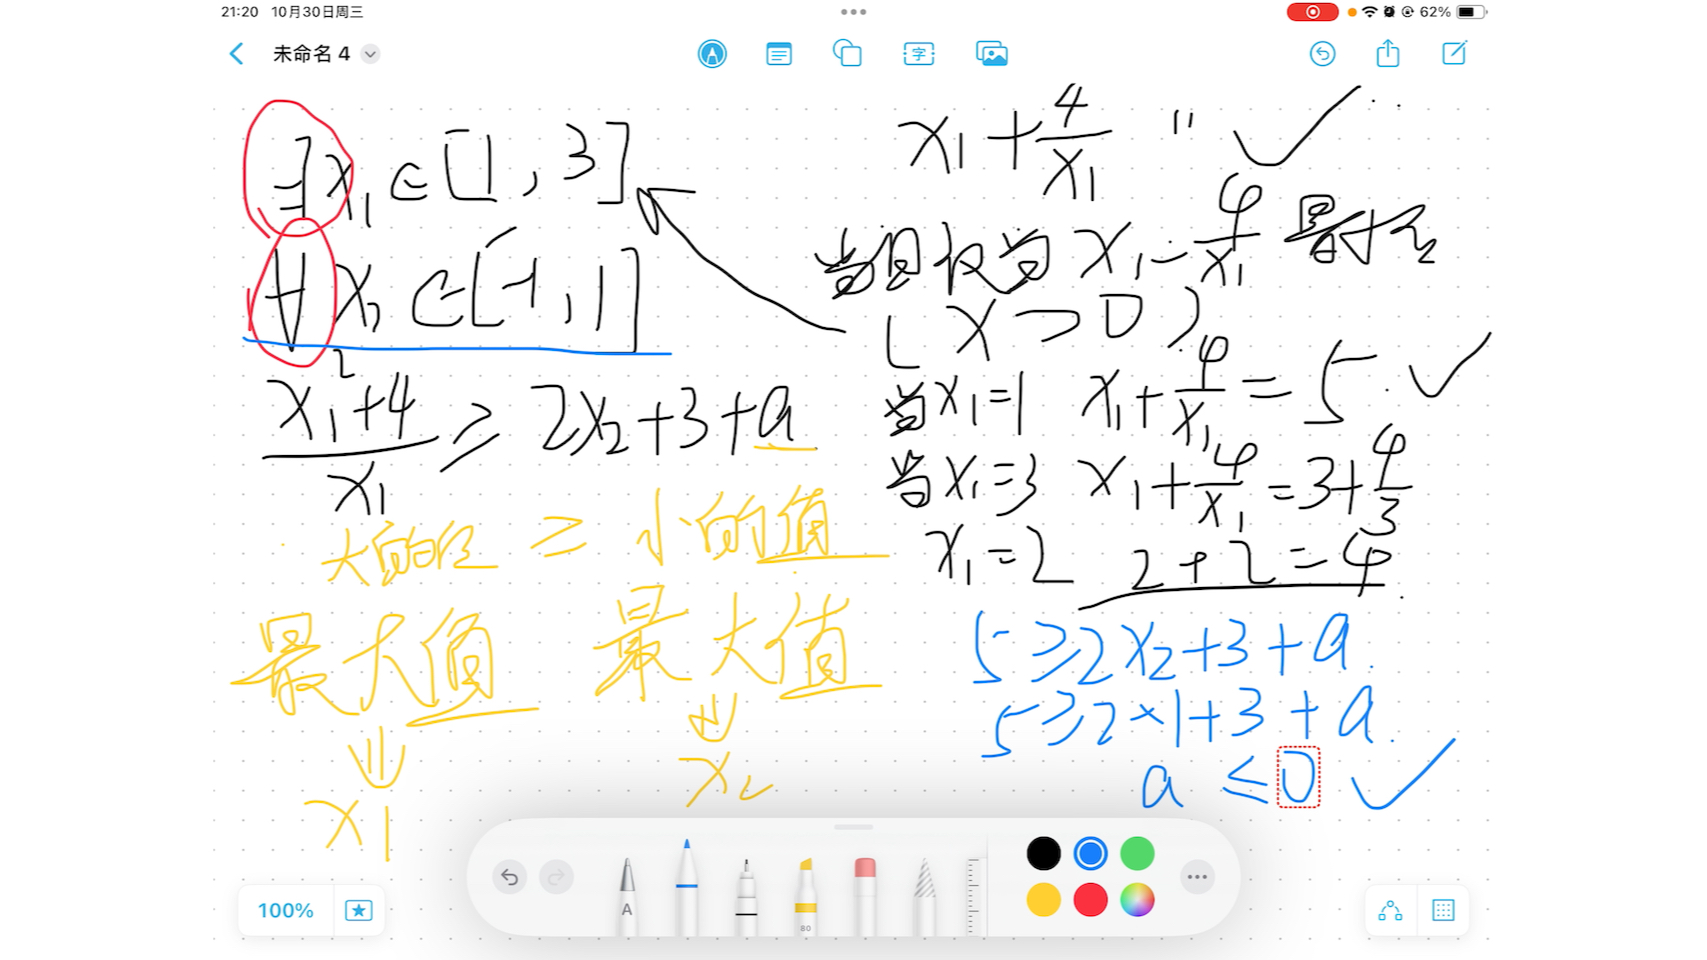 21:20 10月30日周三
62%
未命名 4
字
∃x₁∈[1,3]
∀x₂∈[-1,1]
(x₁²+4)/x₁ ≥ 2x₂+3+a
大的值 ≥ 小的值
最大值 最大值
⇓ ⇓
x₁ x₂
x₁+4/x₁ " ✓
当且仅当 x₁=4/x₁ 最小值
(x>0)
当x₁=1 x₁+4/x₁=5 ✓
当x₁=3 x₁+4/x₁=3+4/3
x₁=2 2+2=4
5≥2x₂+3+a
5≥2×1+3+a
a≤0 ✓
A
80
100%